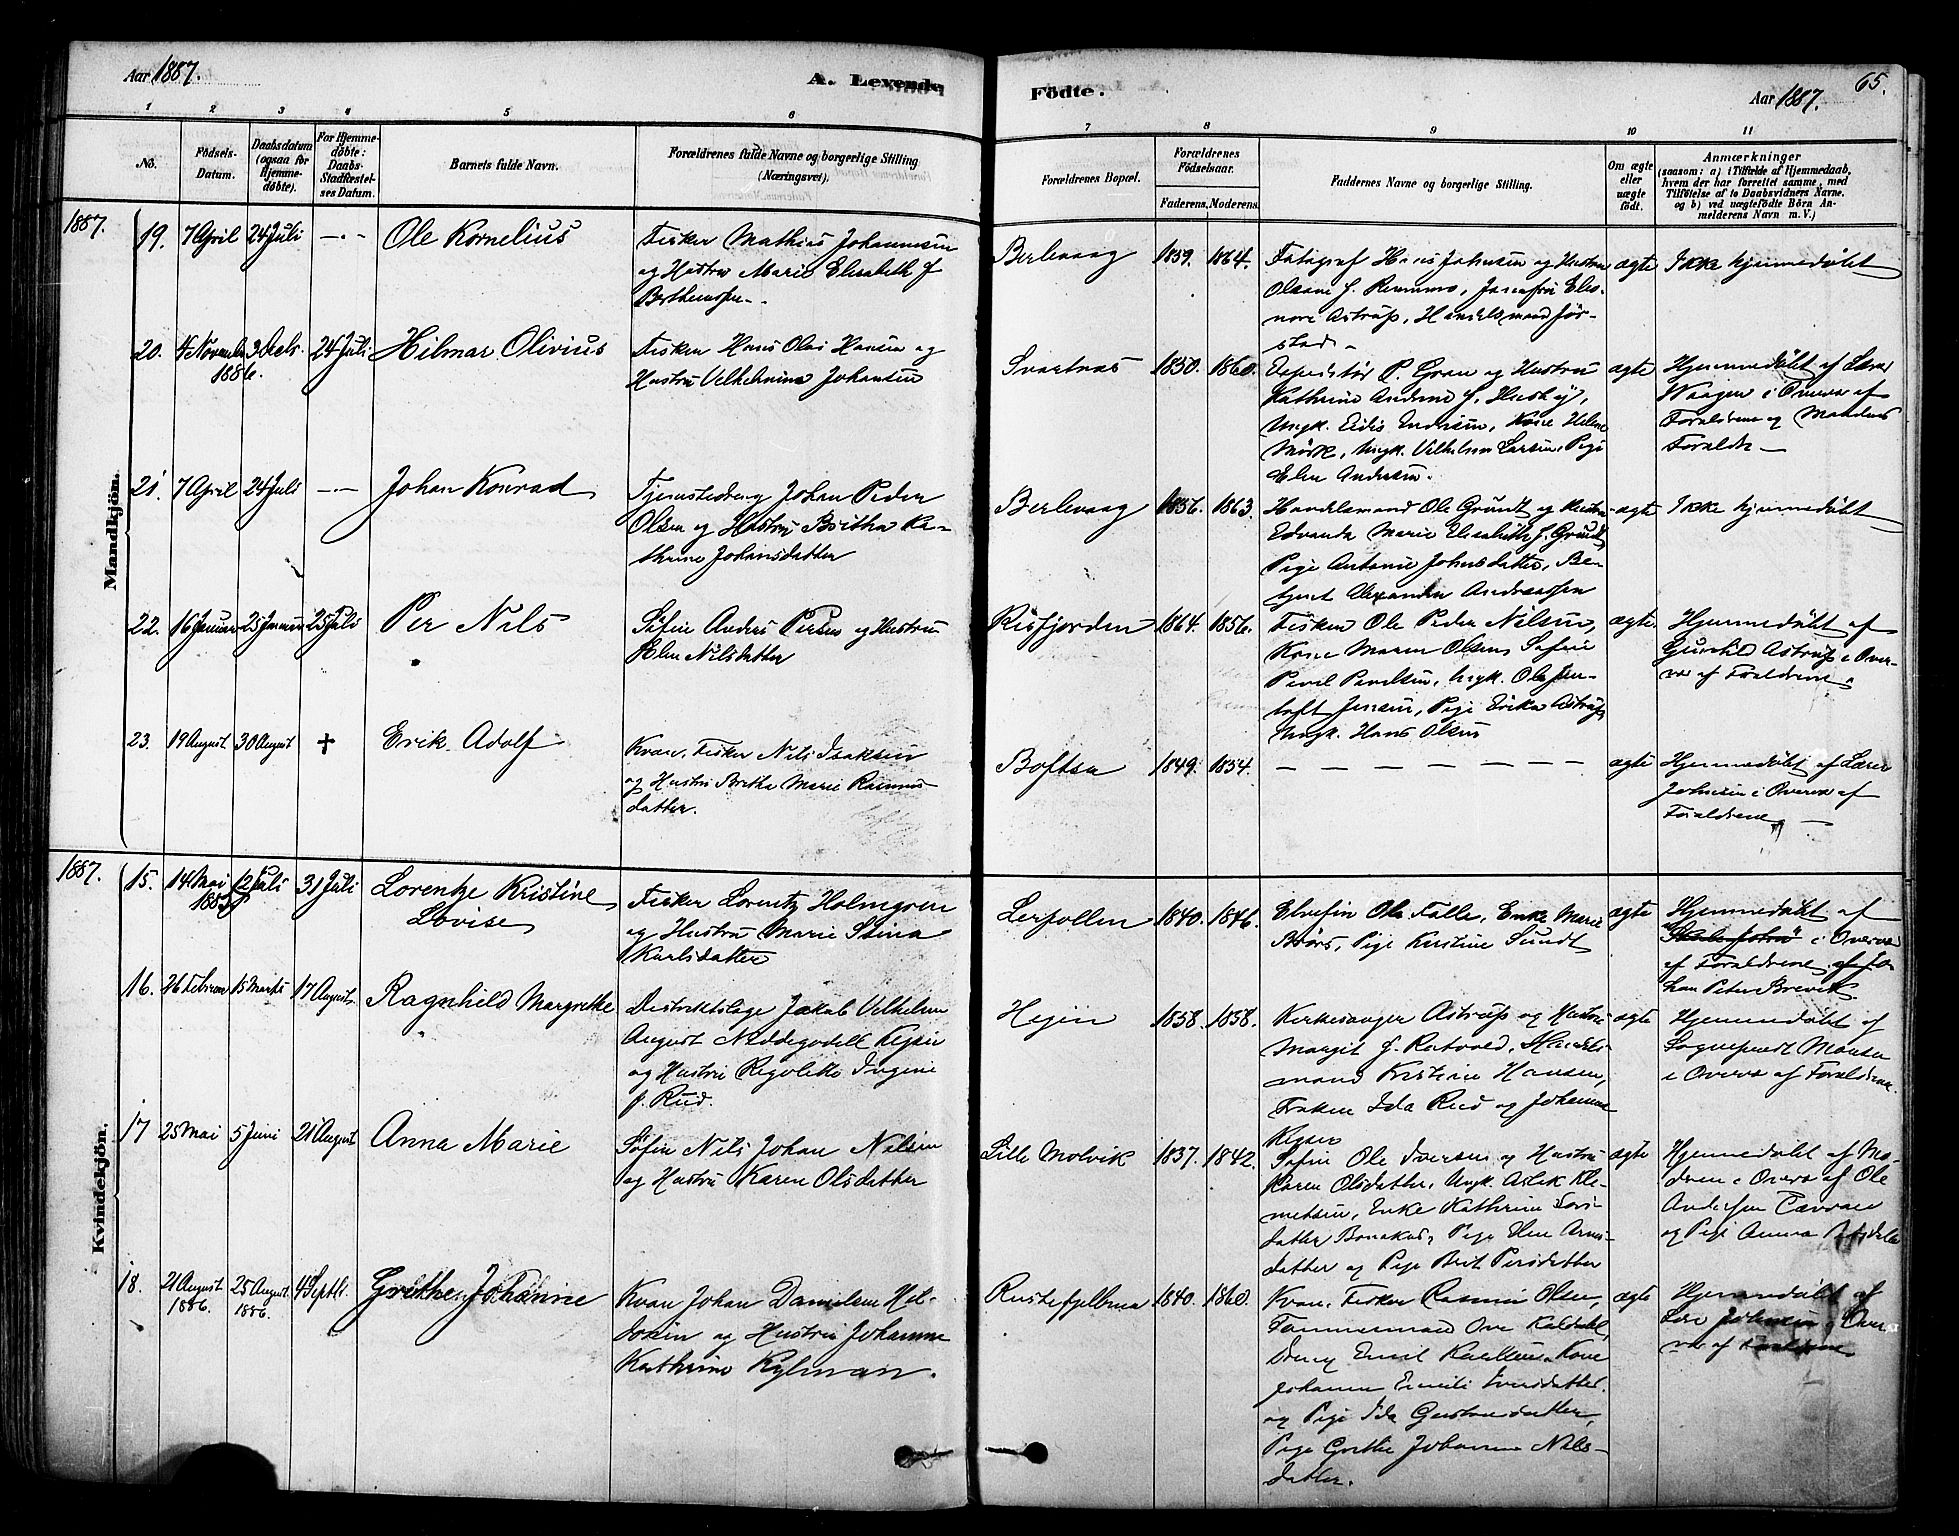 Aar 1887.
A. Levende
Födte.
65.
Aar 1887.
1 2 3 4 5 6 7 8 9 10 11
No.
Födsels-
Datum.
Daabsdatum
(ogsaa for
Hjemme-
döbte).
For Hjemme-
døbte:
Daabs-
Stadfæstel-
ses Datum.
Barnets fulde Navn.
Forældrenes fulde Navne og borgerlige Stilling
(Næringsvei).
Forældrenes Bopæl.
Forældrenes
Födselsaar.
Faderens. Moderens.
Faddernes Navne og borgerlige Stilling.
Om ægte
eller
uægte
födt.
Anmærkninger
(saasom: a) i Tilfælde af Hjemmedaab,
hvem der har forrettet samme, med
Tilföielse af to Daabsvidners Navne.
og b) ved uægtefödte Börn An-
melderens Navn m. V.)
Mandkjön.
1887.
19. 7 April 24 Juli —
Ole Kornelius
Fisker Mathias Johannesen
og Hustru Marie Elisabeth f
Berthensen
Berlevaag 1859. 1864.
Fotograf Hans Johnsen og Hustru
Olsore f. Remmen, Jomfru Eleo-
nore Astrup, Handelsmand Jör-
stad
ægte
Ikke hjemmedöbt
20. 4 Novemb 1886. 3 Dcb. 24 Juli
Hilmar Olivius
Fisker Hans Olai Hansen og
Hustru Vilhelmine Johansen
Svartnes 1850. 1860.
Expeditör P. Gran og Hustru
Kathrine Andrine f. Husby,
Ungk. Eidis Endresen, Kone Helene
Mörk, Ungk. Vilhelm Larsen, Pige
Elen Andersen.
ægte
Hjemmedöbt af Lærer
Waagen i Overv. af
Forældrene og Mandens
Forældre —
21. 7 April 24 Juli —
Johan Konrad
Tjenestedreng Johan Peder
Olsen og Hustru Britha Ka-
thrine Johansdatter
Berlevaag 1856. 1863.
Handelsmand Ole Grundt og Hustru
Edvarda Marie Elisabeth f. Grundt,
Pige Antonie Johnsdatter, Be-
tjent Alexander Andreassen
ægte
Ikke hjemmedöbt
22. 16 Januar 25 Januar 25 Juli
Per Nils
Söfin Anders Persen og Hustru
Elen Nilsdatter
Risfjorden 1864. 1856.
Fisker Ole Peder Nilsen,
Kone Maren Olsen, Söfin
Pavel Pavelsen, Ungk. Ole Jen-
toft Jensen, Pige Erika Astrup,
Ungk. Hans Olsen
ægte.
Hjemmedöbt af
Gunhild Astrup i Over-
vær af Forældrene
23. 19 August 30 August +
Erik Adolf
Kvæn, Fisker Nils Isaksen
og Hustru Bretha Marie Rasmus-
datter.
Boftsa 1849. 1854.
— — — — — — —
ægte
Hjemmedöbt af Lærer
Johnsen i Overv af
Forældrene —
Kvindekjön.
1887.
15. 14 Mai 12 Juli 31 Juli
Lorentze Kristine
Lovise
Fisker Lorentz Holmgren
og Hustru Marie Stina
Karlsdatter
Lerpollen 1840. 1846.
Elvefin Ole Falle, Enke Marie
Brörs, Pige Kristine Sundt
ægte
Hjemmedöbt af
i Overv
af Forældrene af Jo-
han Peter Brevik
16. 26 Februar 15 Marts 17 August
Ragnhild Margrethe
Distriktslæge Jakob Vilhelm
August Keyser
og Hustru Ingine
f. Rud.
1858. 1858.
Kirkesanger Astrup og Hustru
Margit f. Ratvold, Handels-
mand Kristian Hansen,
Fröken Ida Rud og Johanne
Keyser
ægte
Hjemmedöbt af
Sogneprest
i Overv af Forældrene
17 25 Mai 5 Juni 21 August
Anna Marie
Söfin Nils Johan Nilsen
og Hustru Karen Olsdatter
Lille Molvik 1837. 1842.
Söfin Ole Iversen og Hustru
Karen Olsdatter, Ungk. Aslek Kle-
metsen, Enke Kathrine
datter, Pige Elen
datter og Pige Berit Persdatter
ægte
Hjemmedöbt af Mo-
deren i Overv af Ole
Andersen
og Pige Anna
18. 21 August 1886. 25 August 1886. 4 Septb.
Grethe Johanne
Kvæn Johan Danielsen Hol-
og Hustru Johanne
Kathrine Kylman.
Rustefjelbma 1840. 1860.
Kvæn, Fisker Rasmus Olsen,
Tömmermand Ove Kaldahl,
Dreng Emil Kone
Johanne Emilie Iversdatter,
og Pige Ida Gustavsdatter,
Pige Grethe Johanne Nils-
datter.
ægte
Hjemmedöbt af
Johnsen i Over-
vær af Forældrene